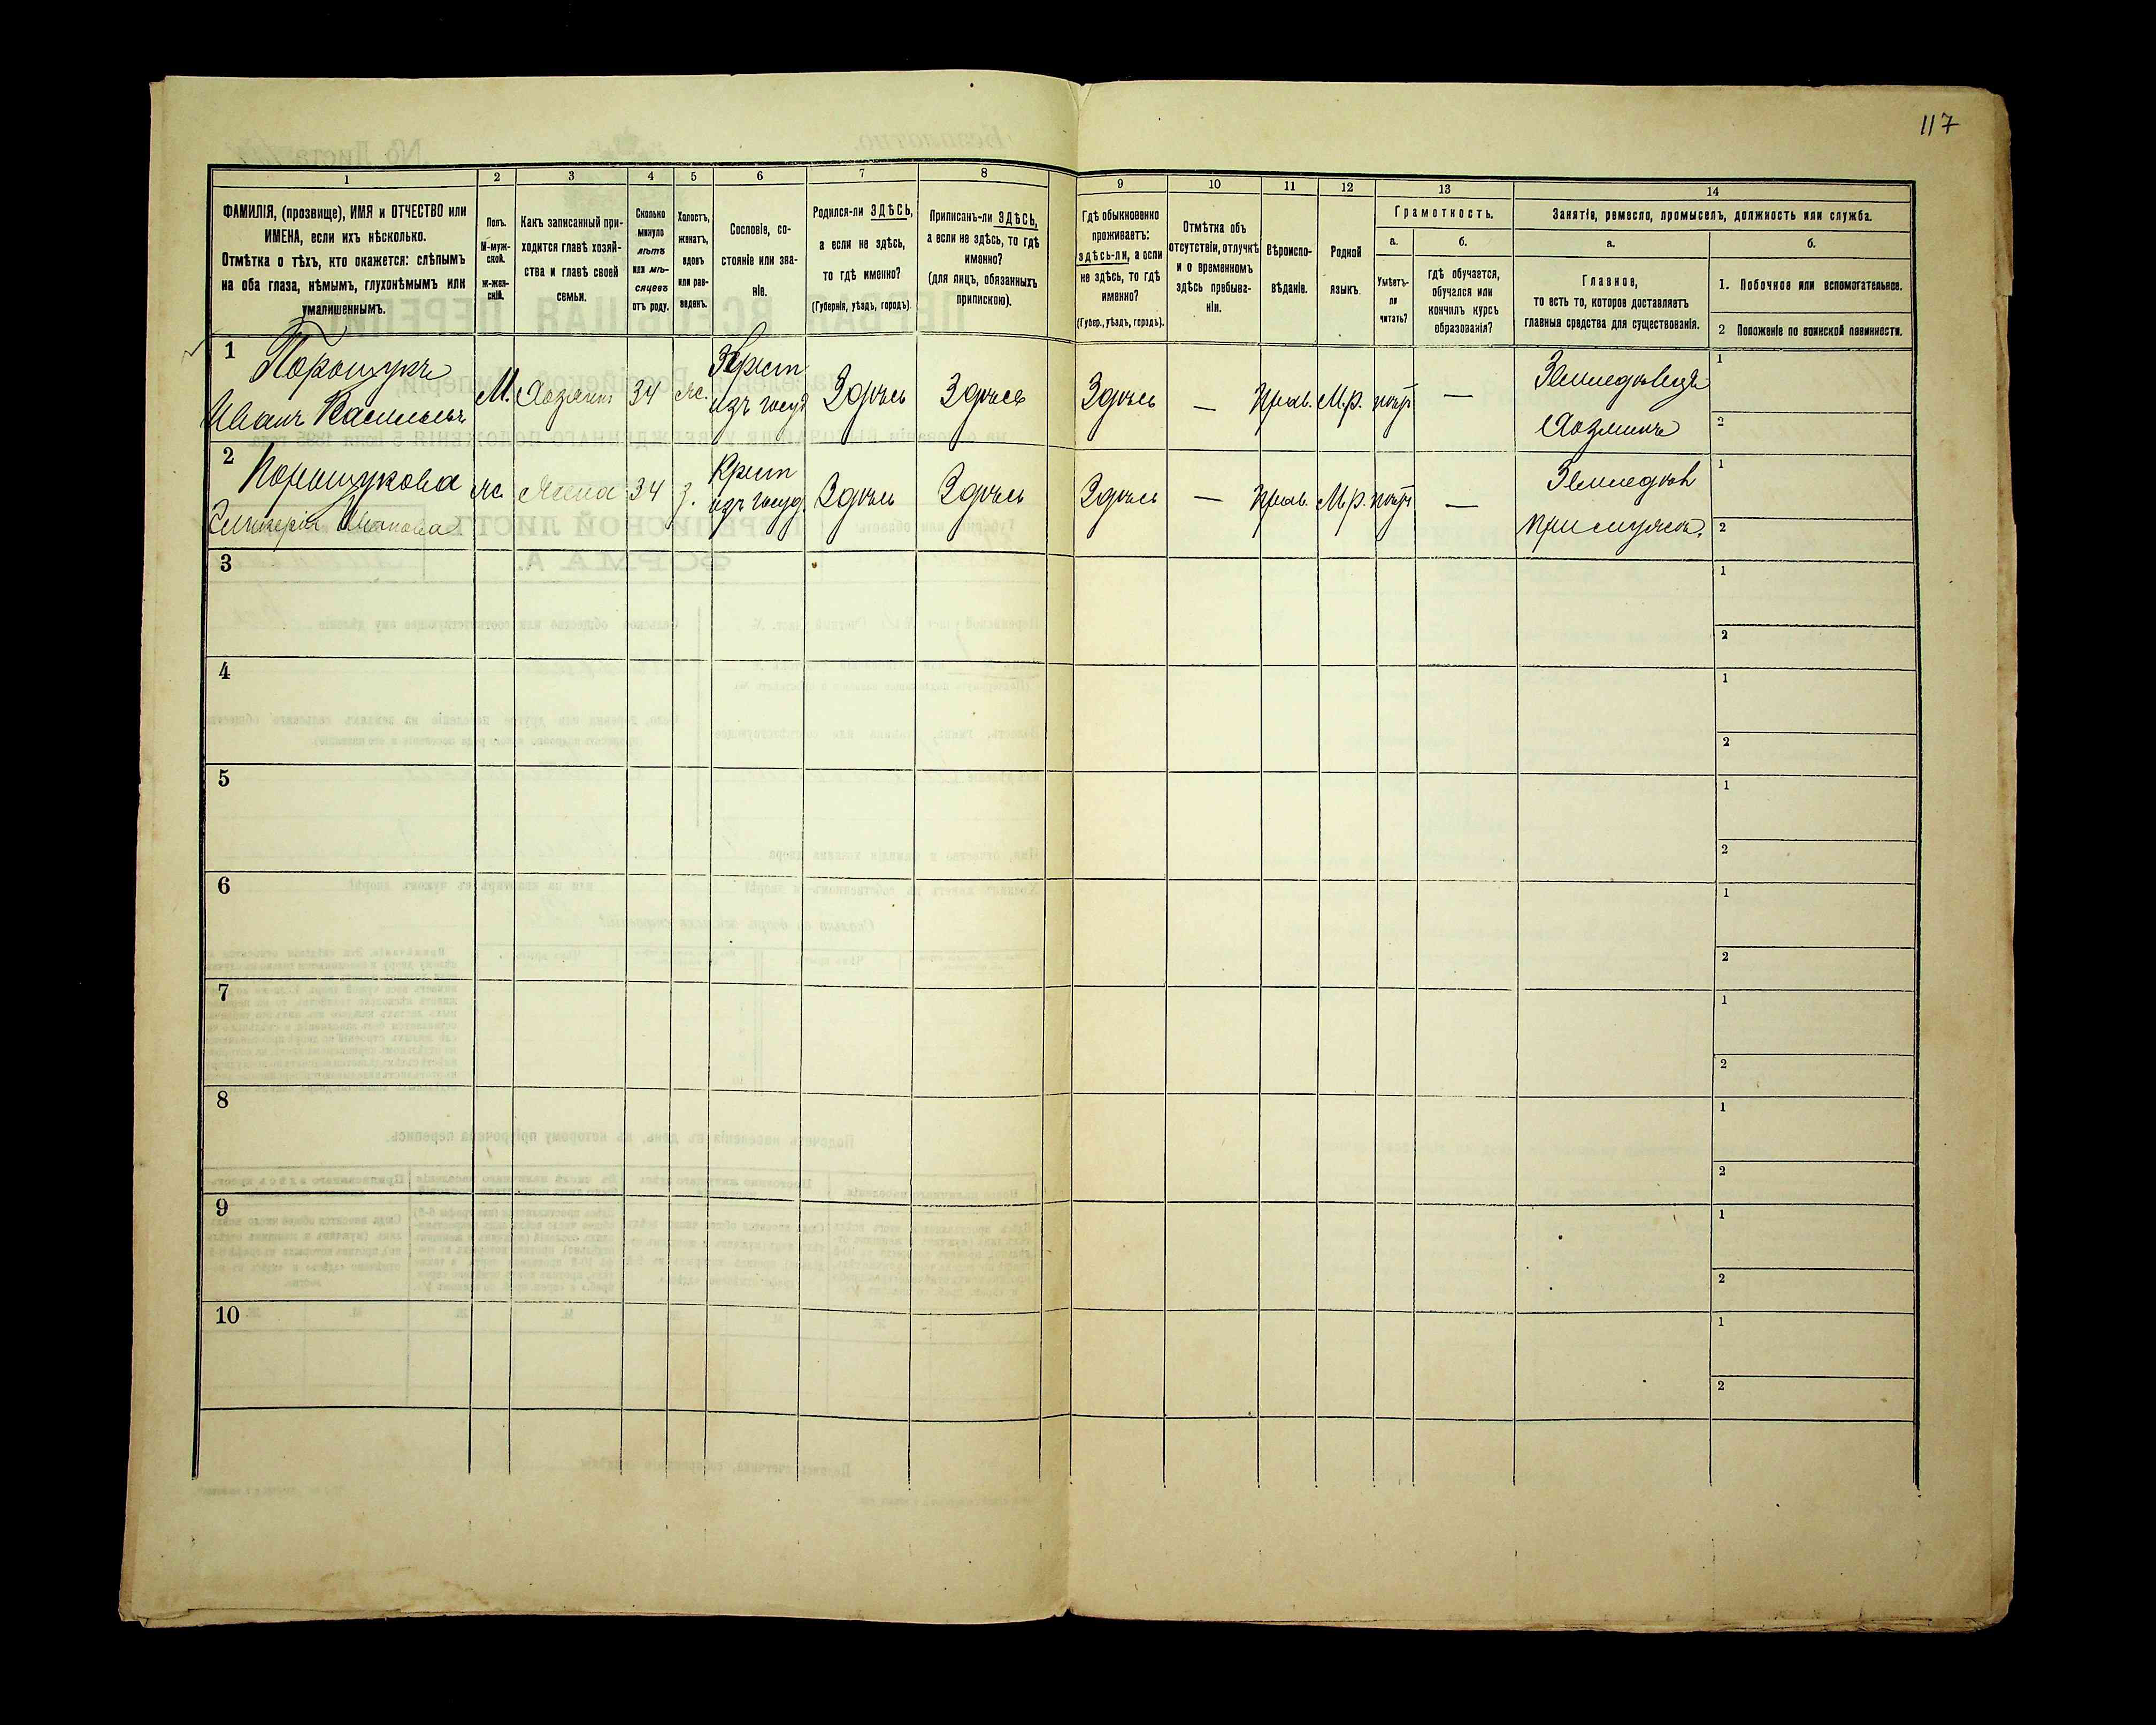 117
1
2
3
4
5
6
7
8
9
10
11
12
13
14
ФАМИЛІЯ, (прозвище), ИМЯ и ОТЧЕСТВО или
ИМЕНА, если ихъ нѣсколько.
Отмѣтка о тѣхъ, кто окажется: слѣпымъ
на оба глаза, нѣмымъ, глухонѣмымъ или
умалишеннымъ.
Полъ.
М-муж-
ской.
ж-жен-
скій.
Какъ записанный при-
ходится главѣ хозяй-
ства и главѣ своей
семьи.
Сколько
минуло
лѣтъ
или мѣ-
сяцевъ
отъ роду.
Холостъ,
женатъ,
вдовъ
или раз-
веденъ.
Сословіе, со-
стояніе или зва-
ніе.
Родился-ли ЗДѢСЬ,
а если не здѣсь,
то гдѣ именно?
(Губернія, уѣздъ, городъ).
Приписанъ-ли ЗДѢСЬ,
а если не здѣсь, то гдѣ
именно?
(для лицъ, обязанныхъ
припискою).
Гдѣ обыкновенно
проживаетъ:
здѣсь-ли, а если
не здѣсь, то гдѣ
именно?
(Губер., уѣздъ, городъ).
Отмѣтка объ
отсутствіи, отлучкѣ
и о временномъ
здѣсь пребыва-
ніи.
Вѣроиспо-
вѣданіе.
Родной
языкъ.
Грамотность.
а.
б.
Умѣетъ-
ли
читать?
гдѣ обучается,
обучался или
кончилъ курсъ
образованія?
Занятіе, ремесло, промыселъ, должность или служба.
а.
б.
Главное,
то есть то, которое доставляетъ
главныя средства для существованія.
1. Побочное или вспомогательное.
2 Положеніе по воинской повинности.
1
Порощукъ
Иванъ Васильевъ
М.
Хозяинъ
34
ж.
Крест
изъ госуд
Здѣсь
Здѣсь
Здѣсь
—
Прав.
М.р.
нѣтъ
—
Земледѣлецъ
Хозяинъ
1
2
2
Порощукова
Ивановна
ж.
Жена
34
з.
Крест
изъ госуд.
Здѣсь
Здѣсь
Здѣсь
—
Прав.
М.р.
нѣтъ
—
Земледѣл
при мужѣ.
1
2
3
1
2
4
1
2
5
1
2
6
1
2
7
1
2
8
1
2
9
1
2
10
1
2